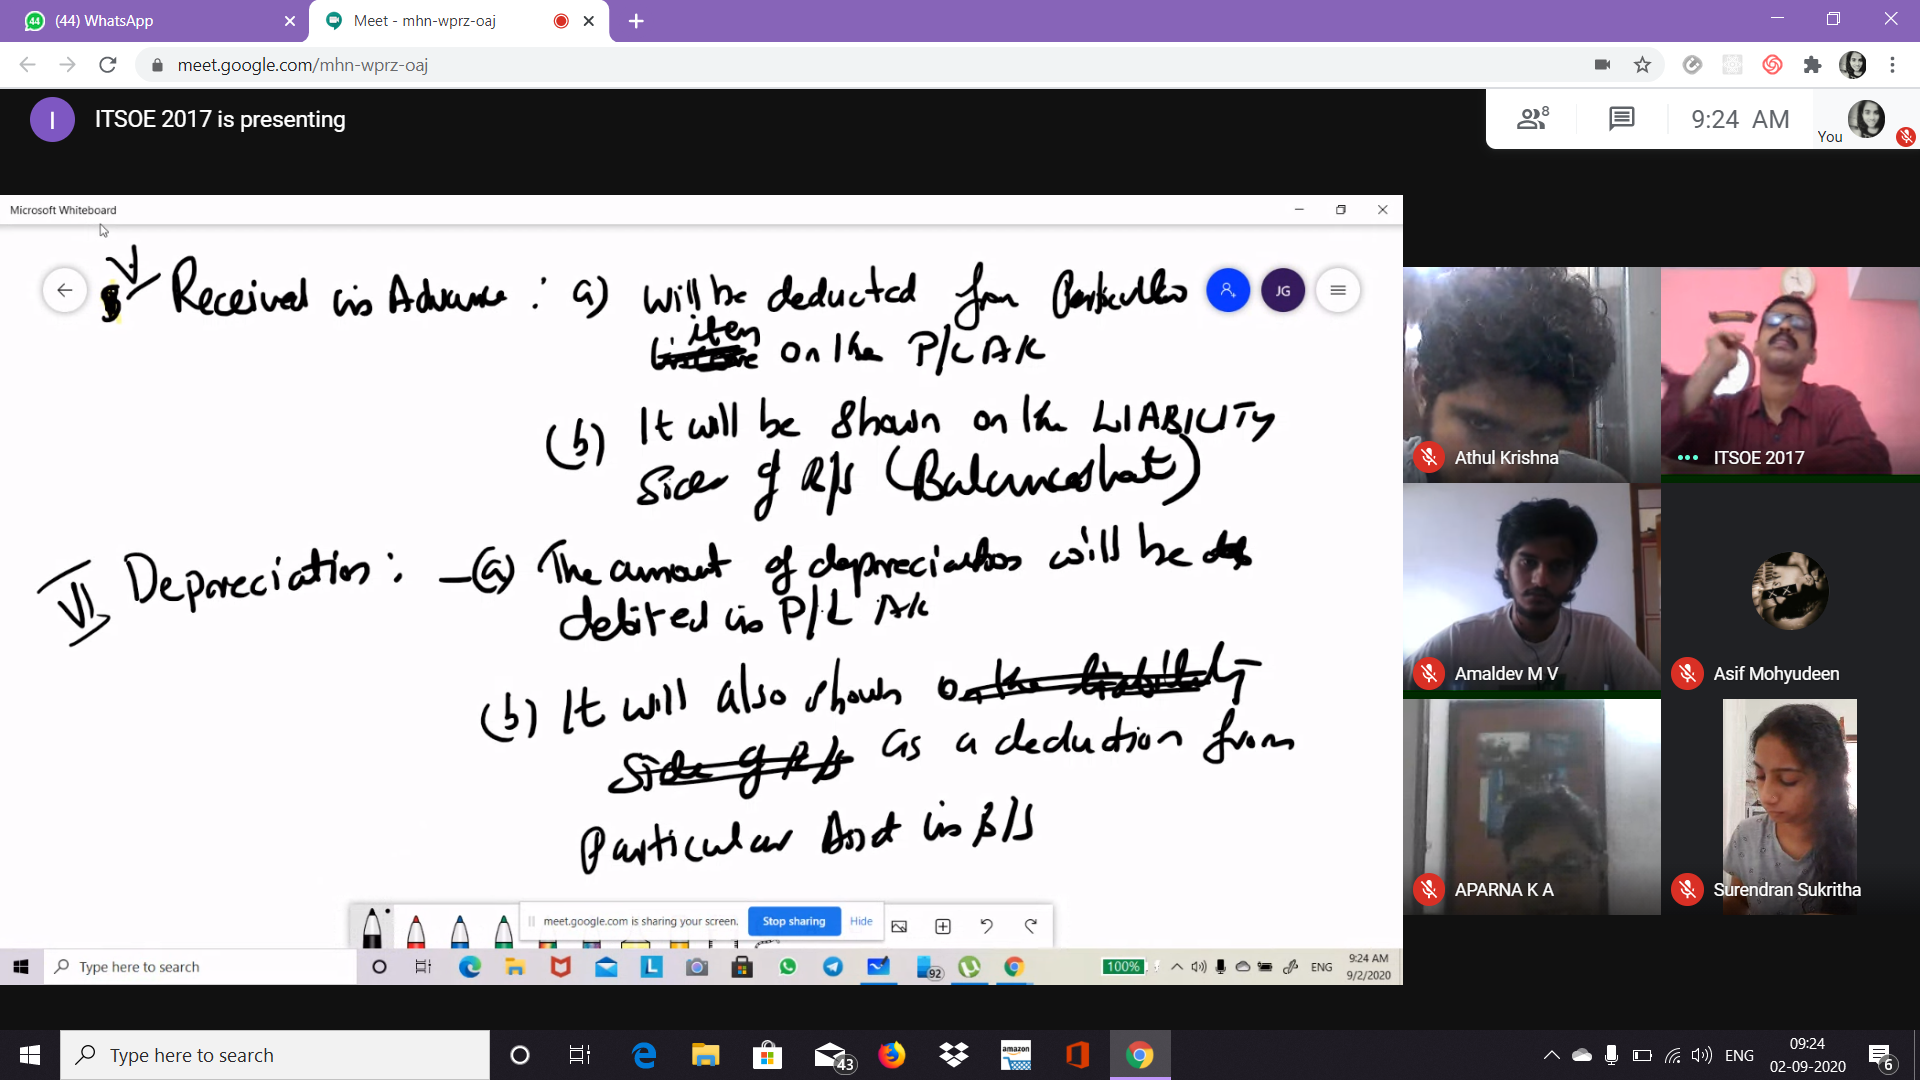 (44) WhatsApp
Meet - mhn-wprz-oaj
meet.google.com/mhn-wprz-oaj
I ITSOE 2017 is presenting
8
9:24 AM
You
Microsoft Whiteboard
V Received in Advance : a) will be deducted from Particular
item
on the P/L A/c
(b) It will be shown on the LIABILITY
Side of B/S (Balancesheet)
JG
VI Depreciation : - (a) The amount of depreciation will be
debited in P/L A/c
(b) It will also shown on the liability
Side of B/S as a deduction from
Particular Asset in B/S
meet.google.com is sharing your screen. Stop sharing Hide
Type here to search
92
100%
ENG
9:24 AM
9/2/2020
Athul Krishna
ITSOE 2017
Amaldev M V
Asif Mohyudeen
APARNA K A
Surendran Sukritha
Type here to search
43
amazon
ENG
09:24
02-09-2020
6